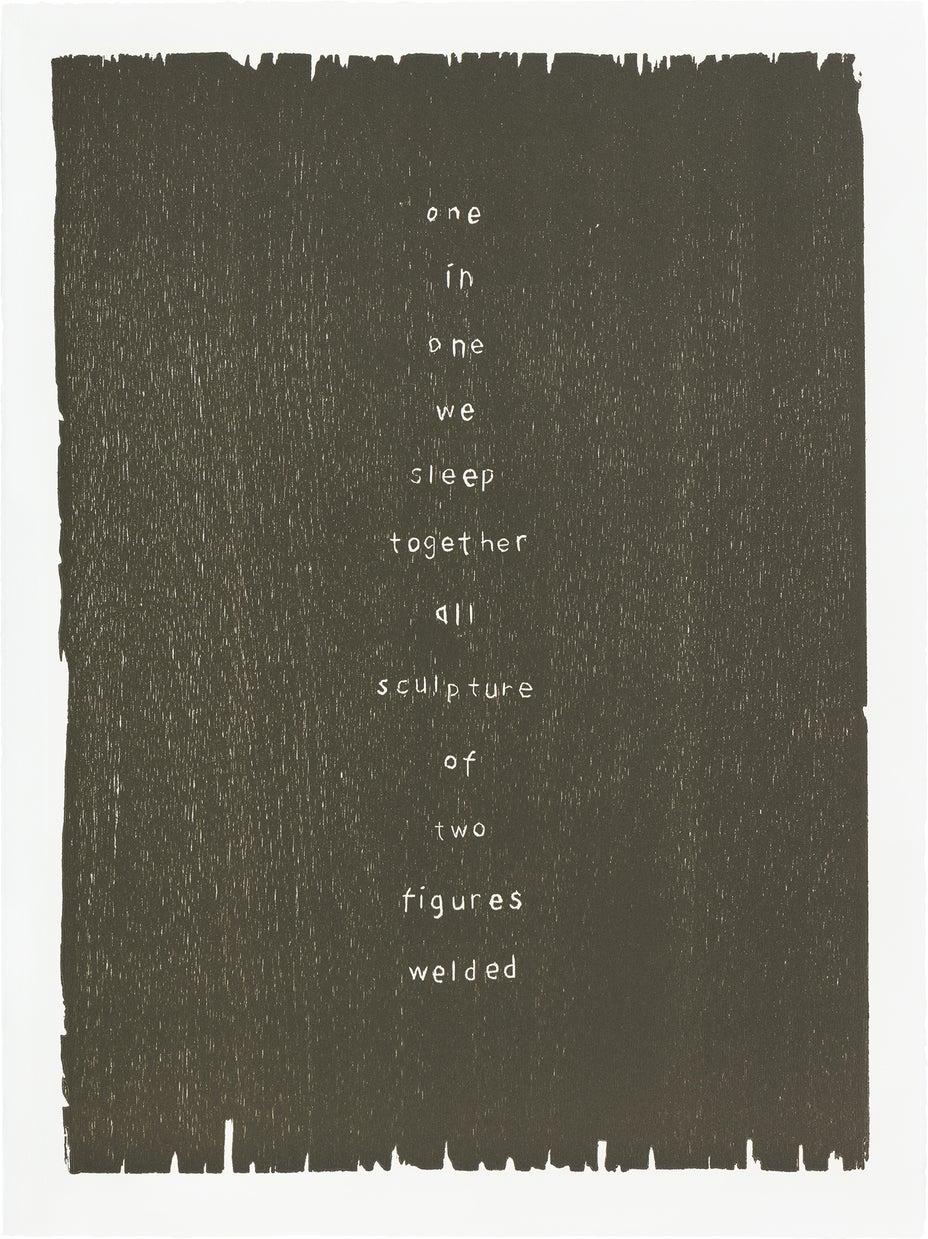 one
in
one
we
sleep
together
all
sculpture
of
two
figures
welded